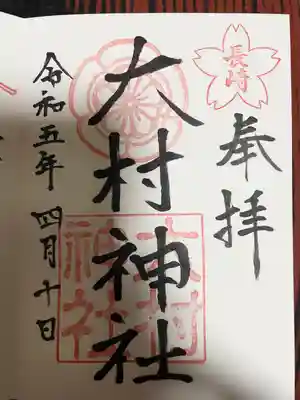 長崎
奉拝
大村神社
大村神社
令和五年 四月十日